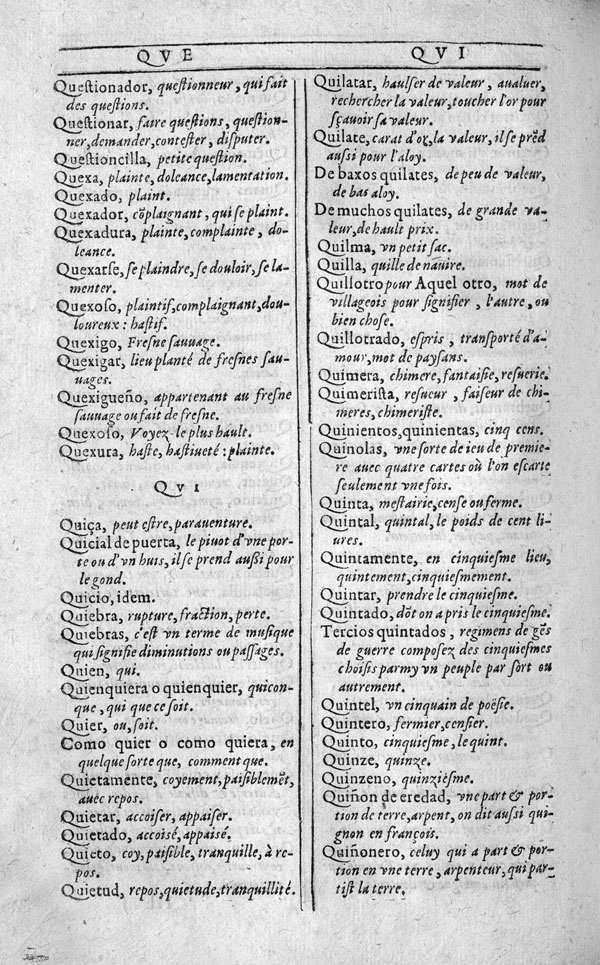 QVE
QVI
Questionador, questionneur, qui fait
des questions.
Questionar, faire questions, question-
ner, demander, contester, disputer.
Questioncilla, petite question.
Quexa, plainte, doleance, lamentation.
Quexado, plaint.
Quexador, cõplaignant, qui se plaint.
Quexadura, plainte, complainte, do-
leance.
Quexarse, se plaindre, se douloir, se la-
menter.
Quexoso, plaintif, complaignant, dou-
loureux: hastif.
Quexigo, Fresne sauuage.
Quexigar, lieu planté de fresnes sau-
uages.
Quexigueño, appartenant au fresne
sauuage ou fait de fresne.
Quexoso, Voyez le plus hault.
Quexura, haste, hastiueté: plainte.
QVI
Quiça, peut estre, parauenture.
Quicial de puerta, le piuot d'vne por-
te ou d'vn huis, il se prend aussi pour
le gond.
Quicio, idem.
Quiebra, rupture, fraction, perte.
Quiebras, c'est vn terme de musique
qui signifie diminutions ou passages.
Quien, qui.
Quienquiera o quienquier, quicon-
que, qui que ce soit.
Quier, ou, soit.
Como quier o como quiera, en
quelque sorte que, comment que.
Quietamente, coyement, paisiblemẽt,
auec repos.
Quietar, accoiser, appaiser.
Quietado, accoisé, appaisé.
Quieto, coy, paisible, tranquille, à re-
pos.
Quietud, repos, quietude, tranquillité.
Quilatar, haulser de valeur, aualuer,
rechercher la valeur, toucher l'or pour
sçauoir sa valeur.
Quilate, carat d'or, la valeur, il se prẽd
aussi pour l'aloy.
De baxos quilates, de peu de valeur,
de bas aloy.
De muchos quilates, de grande va-
leur, de hault prix.
Quilma, vn petit sac.
Quilla, quille de nauire.
Quillotro pour Aquel otro, mot de
villageois pour signifier, l'autre, ou
bien chose.
Quillotrado, espris, transporté d'a-
mour, mot de paysans.
Quimera, chimere, fantaisie, resuerie.
Quimerista, resueur, faiseur de chi-
meres, chimeriste.
Quinientos, quinientas, cinq cens.
Quinolas, vne sorte de ieu de premie-
re auec quatre cartes où l'on escarte
seulement vne fois.
Quinta, mestairie, cense ou ferme.
Quintal, quintal, le poids de cent li-
ures.
Quintamente, en cinquiesme lieu,
quintement, cinquiesmement.
Quintar, prendre le cinquiesme.
Quintado, dõt on a pris le cinquiesme.
Tercios quintados, regimens de gẽs
de guerre composez des cinquiesmes
choisis parmy vn peuple par sort ou
autrement.
Quintel, vn cinquain de poësie.
Quintero, fermier, censier.
Quinto, cinquiesme, le quint.
Quinze, quinze.
Quinzeno, quinziesme.
Quiñon de eredad, vne part & por-
tion de terre, arpent, on dit aussi qui-
gnon en françois.
Quiñonero, celuy qui a part & por-
tion en vne terre, arpenteur, qui par-
tist la terre.